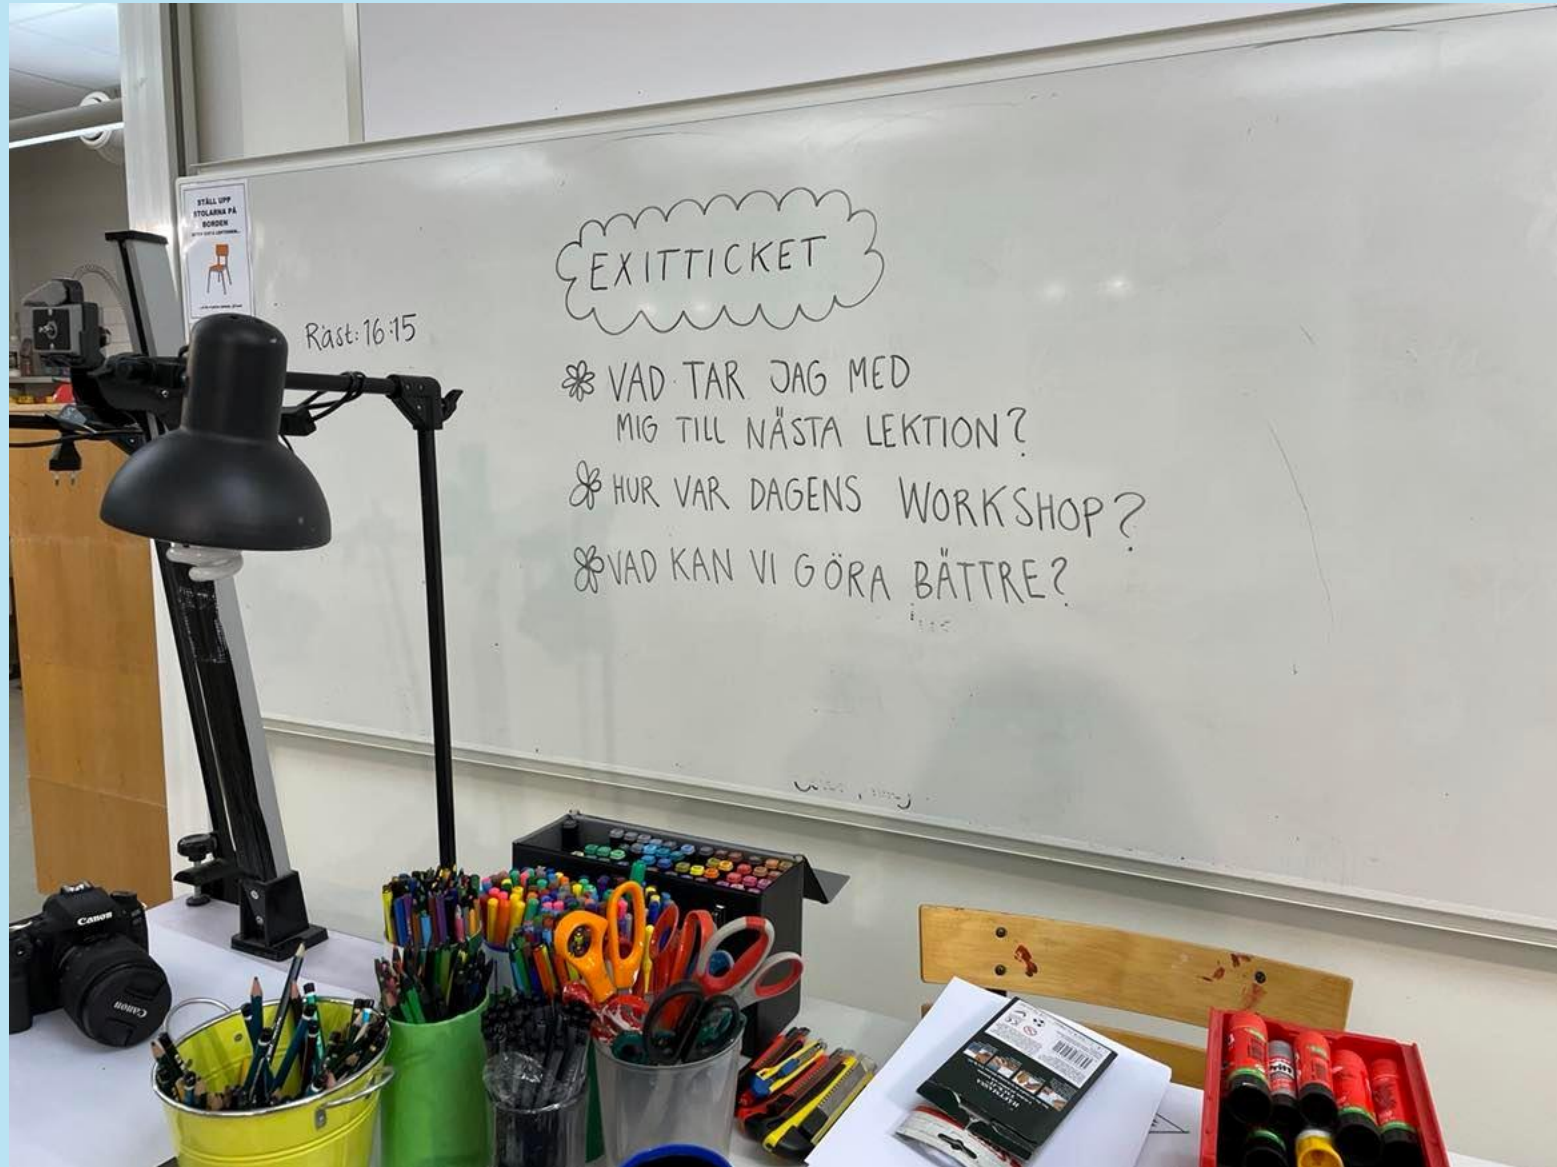 STÄLL UPP
STOLARNA PÅ
BORDEN
Rast: 16:15
EXITTICKET
VAD TAR JAG MED
MIG TILL NÄSTA LEKTION?
HUR VAR DAGENS WORKSHOP?
VAD KAN VI GÖRA BÄTTRE?
Canon
Canon